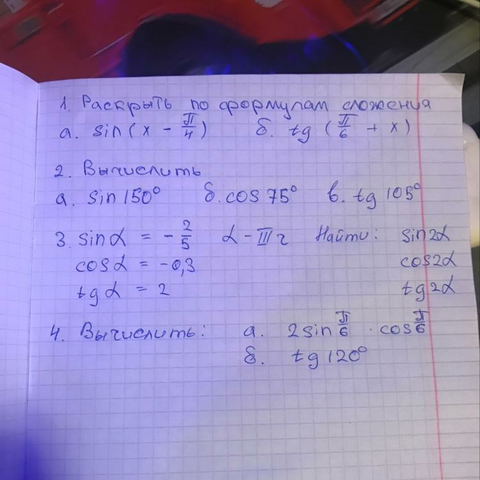 1. Раскрыть по формулам сложения
а. sin(x - π/4) б. tg(π/6 + x)
2. Вычислить
а. sin 150° б. cos 75° в. tg 105°
3. sinα = -2/5 α - III г Найти: sin2α
cosα = -0,3 cos2α
tgα = 2 tg2α
4. Вычислить: а. 2sin π/6 · cos π/6
б. tg 120°